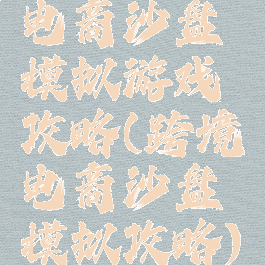 电商沙盘
模拟游戏
攻略(跨境
电商沙盘
模拟攻略)